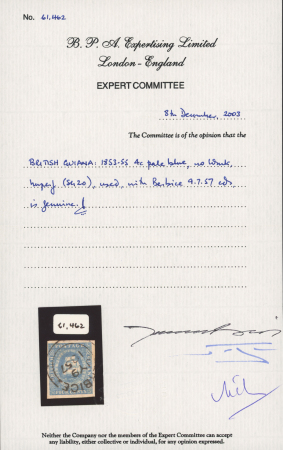 No. 61,462
B. P. A. Expertising Limited
London - England
EXPERT COMMITTEE
8th December, 2003
The Committee is of the opinion that the
BRITISH GUIANA: 1853-55 4c pale blue, no wmk,
imperf (SG20), used, with Berbice 9.7.57 cds
is genuine.
61,462
BICE
Neither the Company nor the members of the Expert Committee can accept
any liability, either collective or individual, for any opinion expressed.